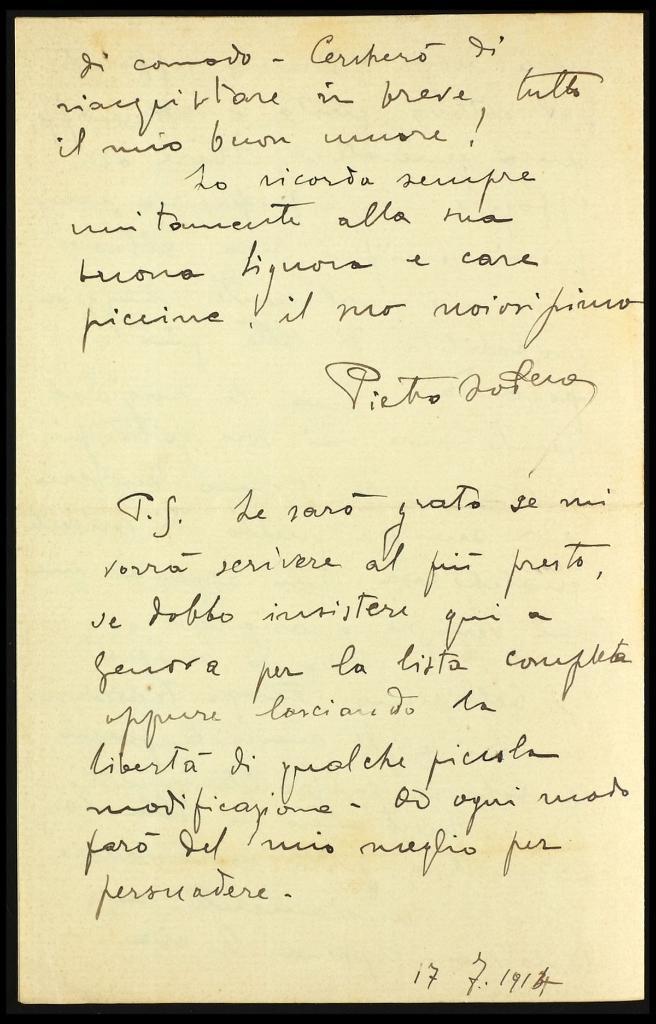 di comodo - Cercherò di
riacquistare in breve, tutto
il mio buon umore!
Lo ricorda sempre
unitamente alla sua
buona signora e care
piccine, il suo noiosissimo
Pietro
P.S. Le sarò grato se mi
vorrà scrivere al più presto,
se debbo insistere qui a
Genova per la lista completa
oppure lasciando la
libertà di qualche piccola
modificazione - Ad ogni modo
farò del mio meglio per
persuadere -
17 7. 1914